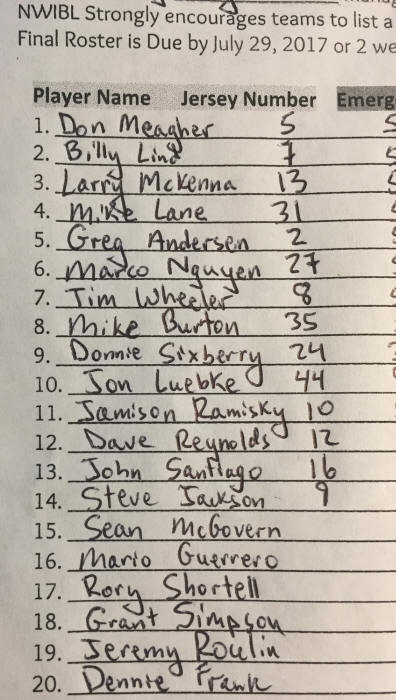 NWIBL Strongly encourages teams to list a
Final Roster is Due by July 29, 2017 or 2 we
Player Name Jersey Number Emerg
1. Don Meagher 5
2. Billy Lind 7
3. Larry McKenna 13
4. Mike Lane 31
5. Greg Andersen 2
6. Marco Nguyen 27
7. Tim Wheeler 8
8. Mike Burton 35
9. Donnie Sixberry 24
10. Jon Luebke 44
11. Jamison Ramisky 10
12. Dave Reynolds 12
13. John Santiago 16
14. Steve Jackson 9
15. Sean McGovern
16. Mario Guerrero
17. Rory Shortell
18. Grant Simpson
19. Jeremy Roulin
20. Dennie Frank